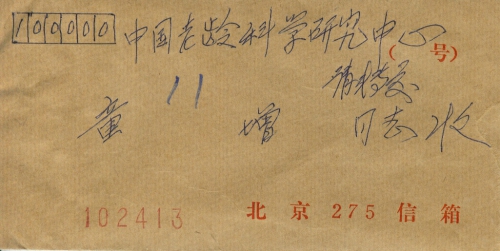 100000 中国老龄科学研究中心
(号)
11 请转交
童增 同志收
102413 北京275信箱